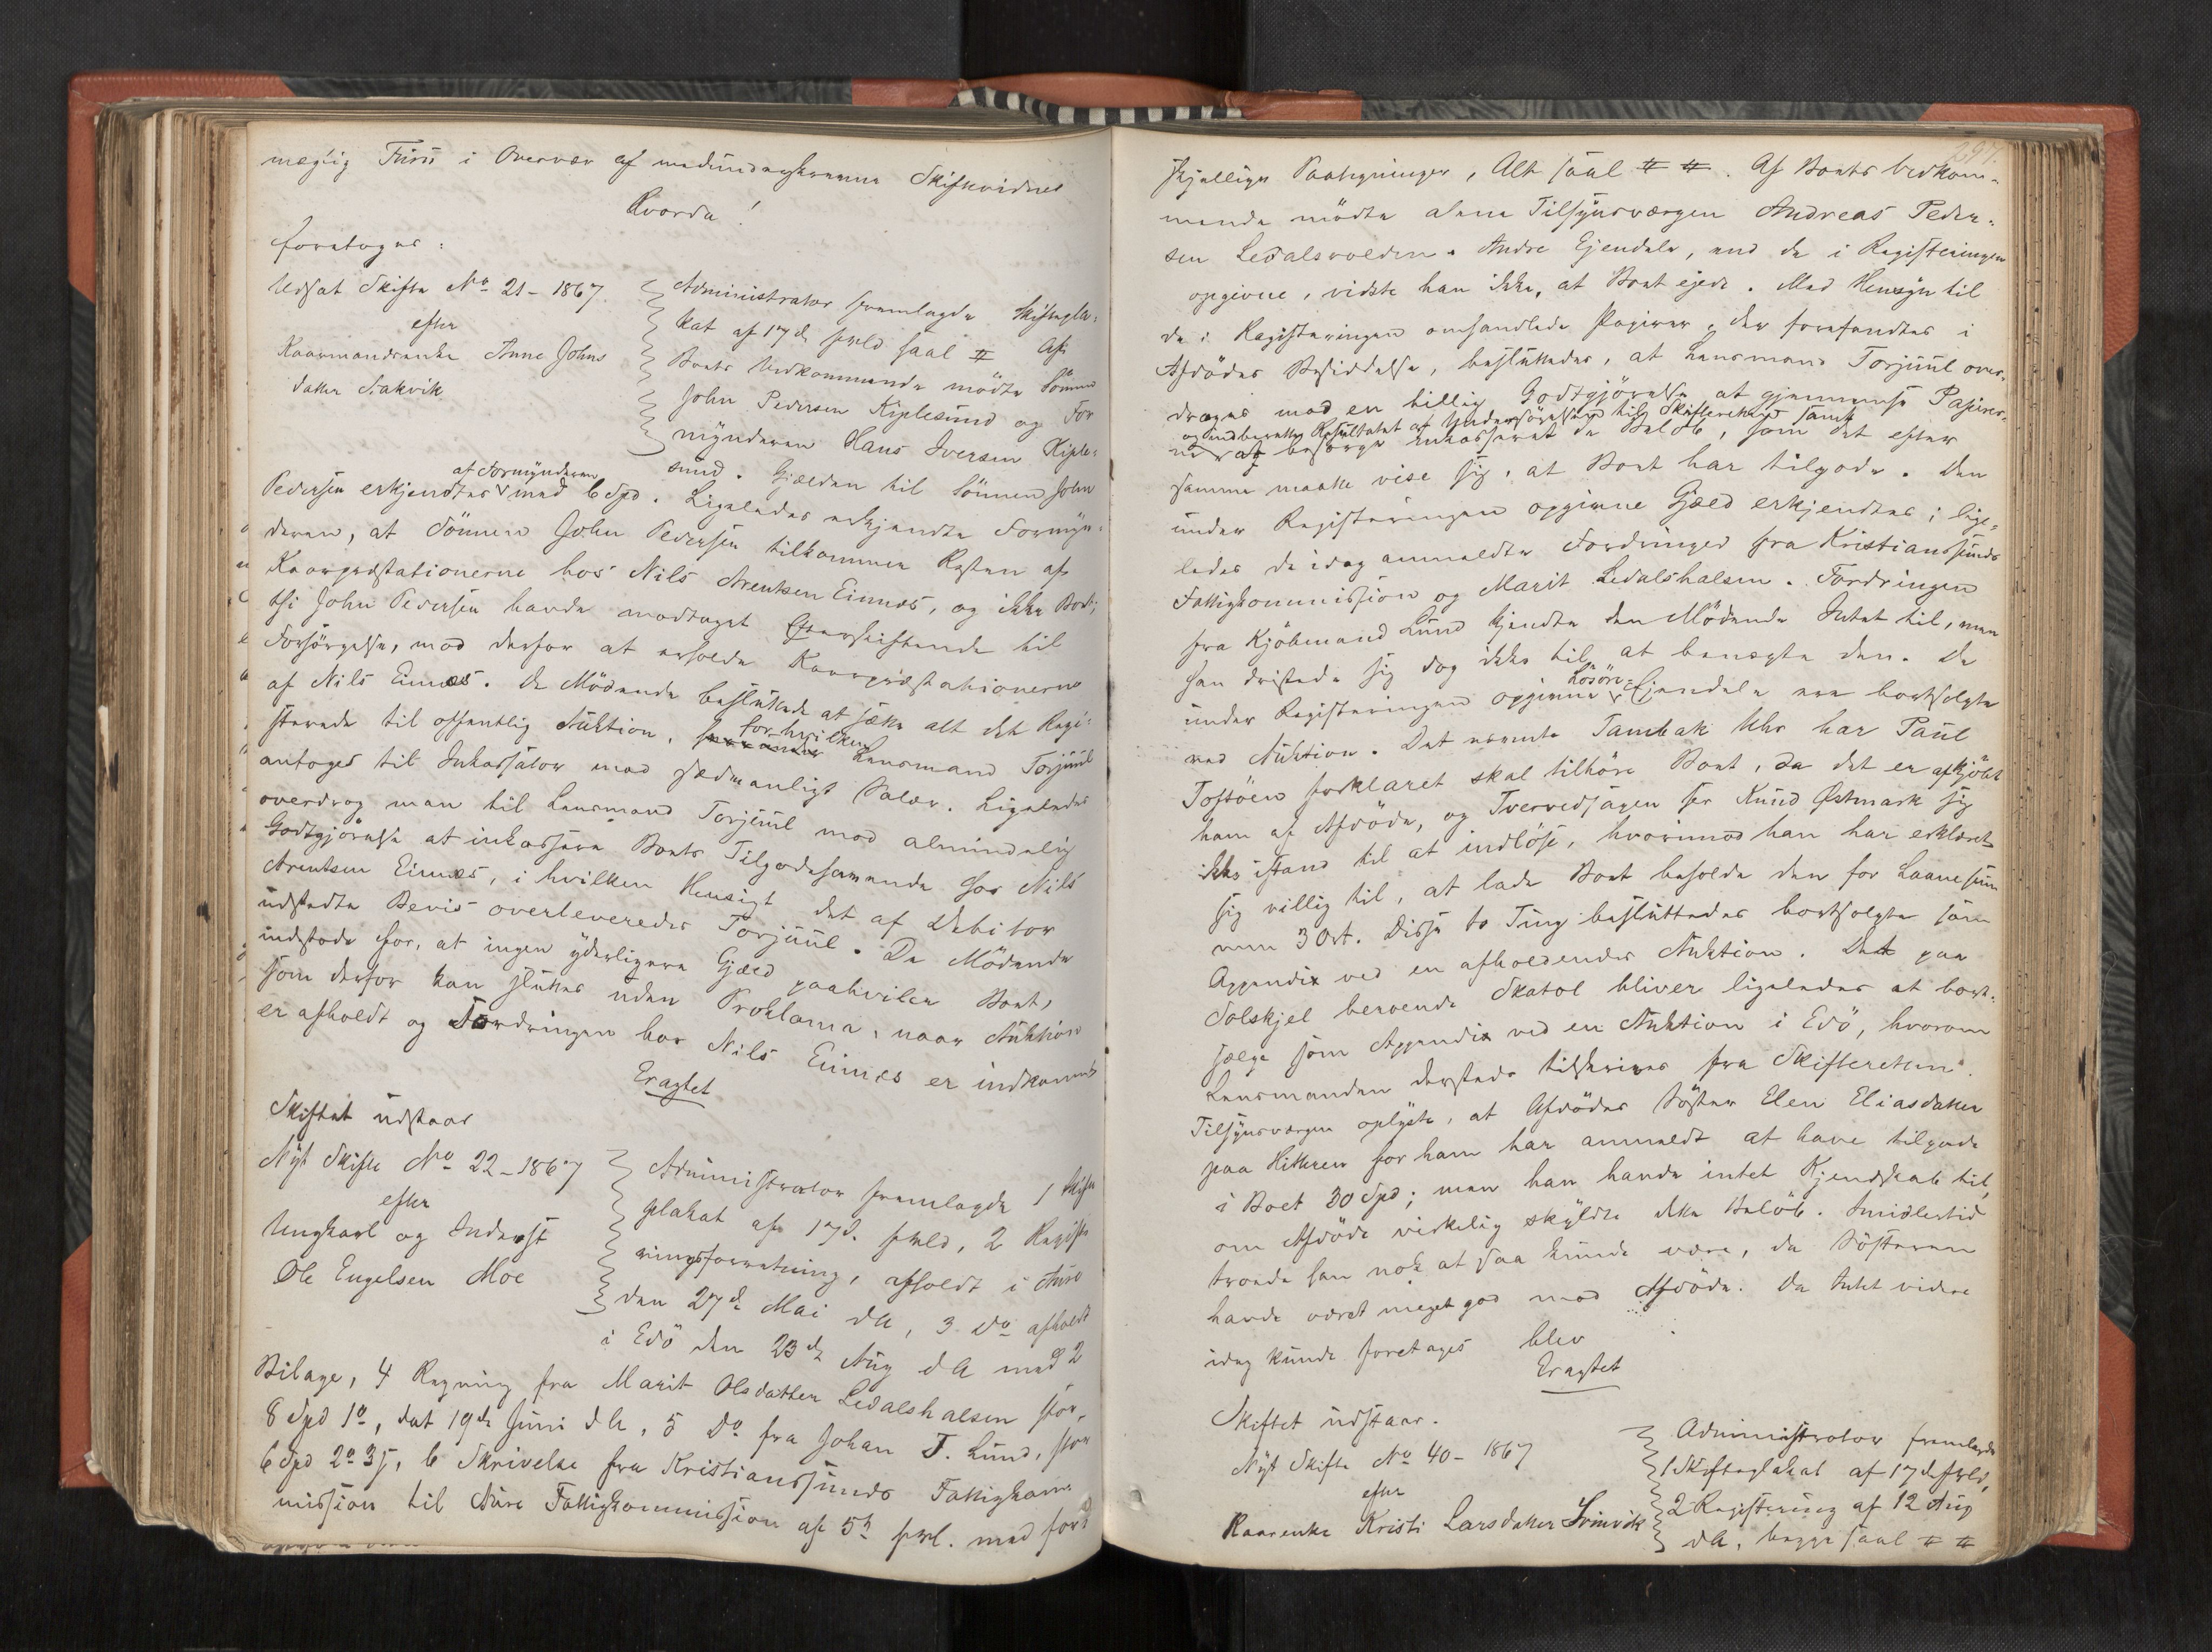 mægtig Fürü i Overvær af medunderskrevne Skiftevidner
Hvorda!
foretoges:
Udsat Skifte No 21-1867.
efter
Kaarmandsenke Anne Johns
datter Nakvik
Administrator fremlagde Skiftepla-
kat af 17de f. Md saal # Af
Boets Vedkommende mödte Sönnen
John Pedersen Kiplesund og For
mynderen Hans Iversen Kiple-
sund. Gjælden til Sönnen John
Pedersen erkjendtes af Formynderen med 6 Spd. Ligeledes erkjendte Formyn-
deren, at Sönnen John Pedersen tilkommer Resten af
Kaarprestationerne hos Nils Arentsen Einnes, og ikke Boet,
thi John Pedersen havde modtaget Efterskiftende til
Forsörgelse, mod derfor at erholde Kaarprestationerne
af Nils Einnes. De Mödende besluttede at sælge alt det Regi-
strerede til offentlig Auktion, for hvilken Lensmand Torjuul
antoges til Inkassator mod sedvanligt Salær. Ligeledes
overdrog man til Lensmand Torjuul mod almindelig
Godtgjörelse at inkassere Boets Tilgodehavende hos Nils
Arentsen Einnes, i hvilken Hensigt det af Debitor
udstedte Bevis overleveredes Torjuul. De Mödende
indstode for, at ingen yderligere Gjæld paahviler Boet,
som derfor kan sluttes uden Proklama, naar Auktion
er afholdt og Fordringen hos Nils Einnes er indkommet
Eragtet
Skiftet udstaar
Nyt Skifte No 22-1867
efter
Ungkarl og Inderst
Ole Engelsen Moe
Administrator fremlagde 1 Skifte
plakat af 17d. f. Md, 2 Registe
ringsforretning, afholdt i Aure
den 27de Mai dA, 3 Do afholdt
i Edö den 23de Aug dA med 2
Bilage, 4 Regning fra Marit Olsdatter Ledalshalsen stor,
8 Spd 1o, dat 19de Juni dA, 5 Do fra Johan F. Lund, stor
6 Spd 2o 3s, 6 Skrivelse fra Kristianssunds Fattigkom
mission til Aure Fattigkommission af 5te f. M. med for
297.
skjellige Paategninger, Alt saal # #. Af Boets Vedkom-
mende mödte alene Tilsynsværgen Andreas Peder-
sen Ledalsvolden. Andre Ejendele, end de i Registeringen
opgivne, vidste han ikke, at Boet ejede. Med Hensyn til
de i Registeringen omhandlede Papirer, der forefandtes i
Afdödes Besiddelse, besluttedes, at Lensmand Torjuul over-
droges mod en billig Godtgjörelse at gjennemse Papirer-
og indberette Resultatet af Undersögelsen til Skifteretten samt
ne at besörge inkasseret de Belöb, som det efter
samme maatte vise sig, at Boet har tilgode. Den
under Registeringen opgivne Gjæld erkjendtes; lige-
ledes de idag anmeldte Fordringer fra Kristianssunds
Fattigkommission og Marit Ledalshalsen. Fordringen
fra Kjöbmand Lund kjendte den Mödende Intet til, men
han dristede sig dog ikke til at benegte den. De
under Registeringen opgivne Lösöre-Ejendele ere bortsolgte
ved Auktion. Det nevnte Tambak Uhr har Paul
Toftöen forklaret skal tilhöre Boet, da det er afkjöbt
ham af Afdöde, og Tvervedsagen ser Knud Østmark sig
ikke istand til at indlöse, hvorimod han har erklæret
sig villig til, at lade Boet beholde den for Laanesum
men 3 Ort. Disse to Ting besluttedes bortsolgte som
Appendix ved en afholdendes Auktion. Det paa
Solskjel beroende Skatol bliver ligeledes at bort-
sælge som Appendix ved en Auktion i Edö, hvorom
Lensmanden dersteds tilskrives fra Skifteretten.
Tilsynsværgen oplyste, at Afdödes Söster Elen Eliasdatter
paa Hitteren for ham har anmeldt at have tilgode
i Boet 30 Spd; men han havde intet Kjendskab til,
om Afdöde virkelig skyldte dette Belöb. Imidlertid
troede han nok at saa kunde være, da Sösteren
havde været meget god mod Afdöde. Da Intet videre
idag kunde foretages blev
Eragtet
Skiftet udstaar.
Nyt Skifte No 40-1867
efter
Kaarenke Kristi Larsdatter Svinvik
Administrator fremlagde
1 Skifteplakat af 17de f. Md,
2 Registering af 12 Aug
dA, begge saal # #